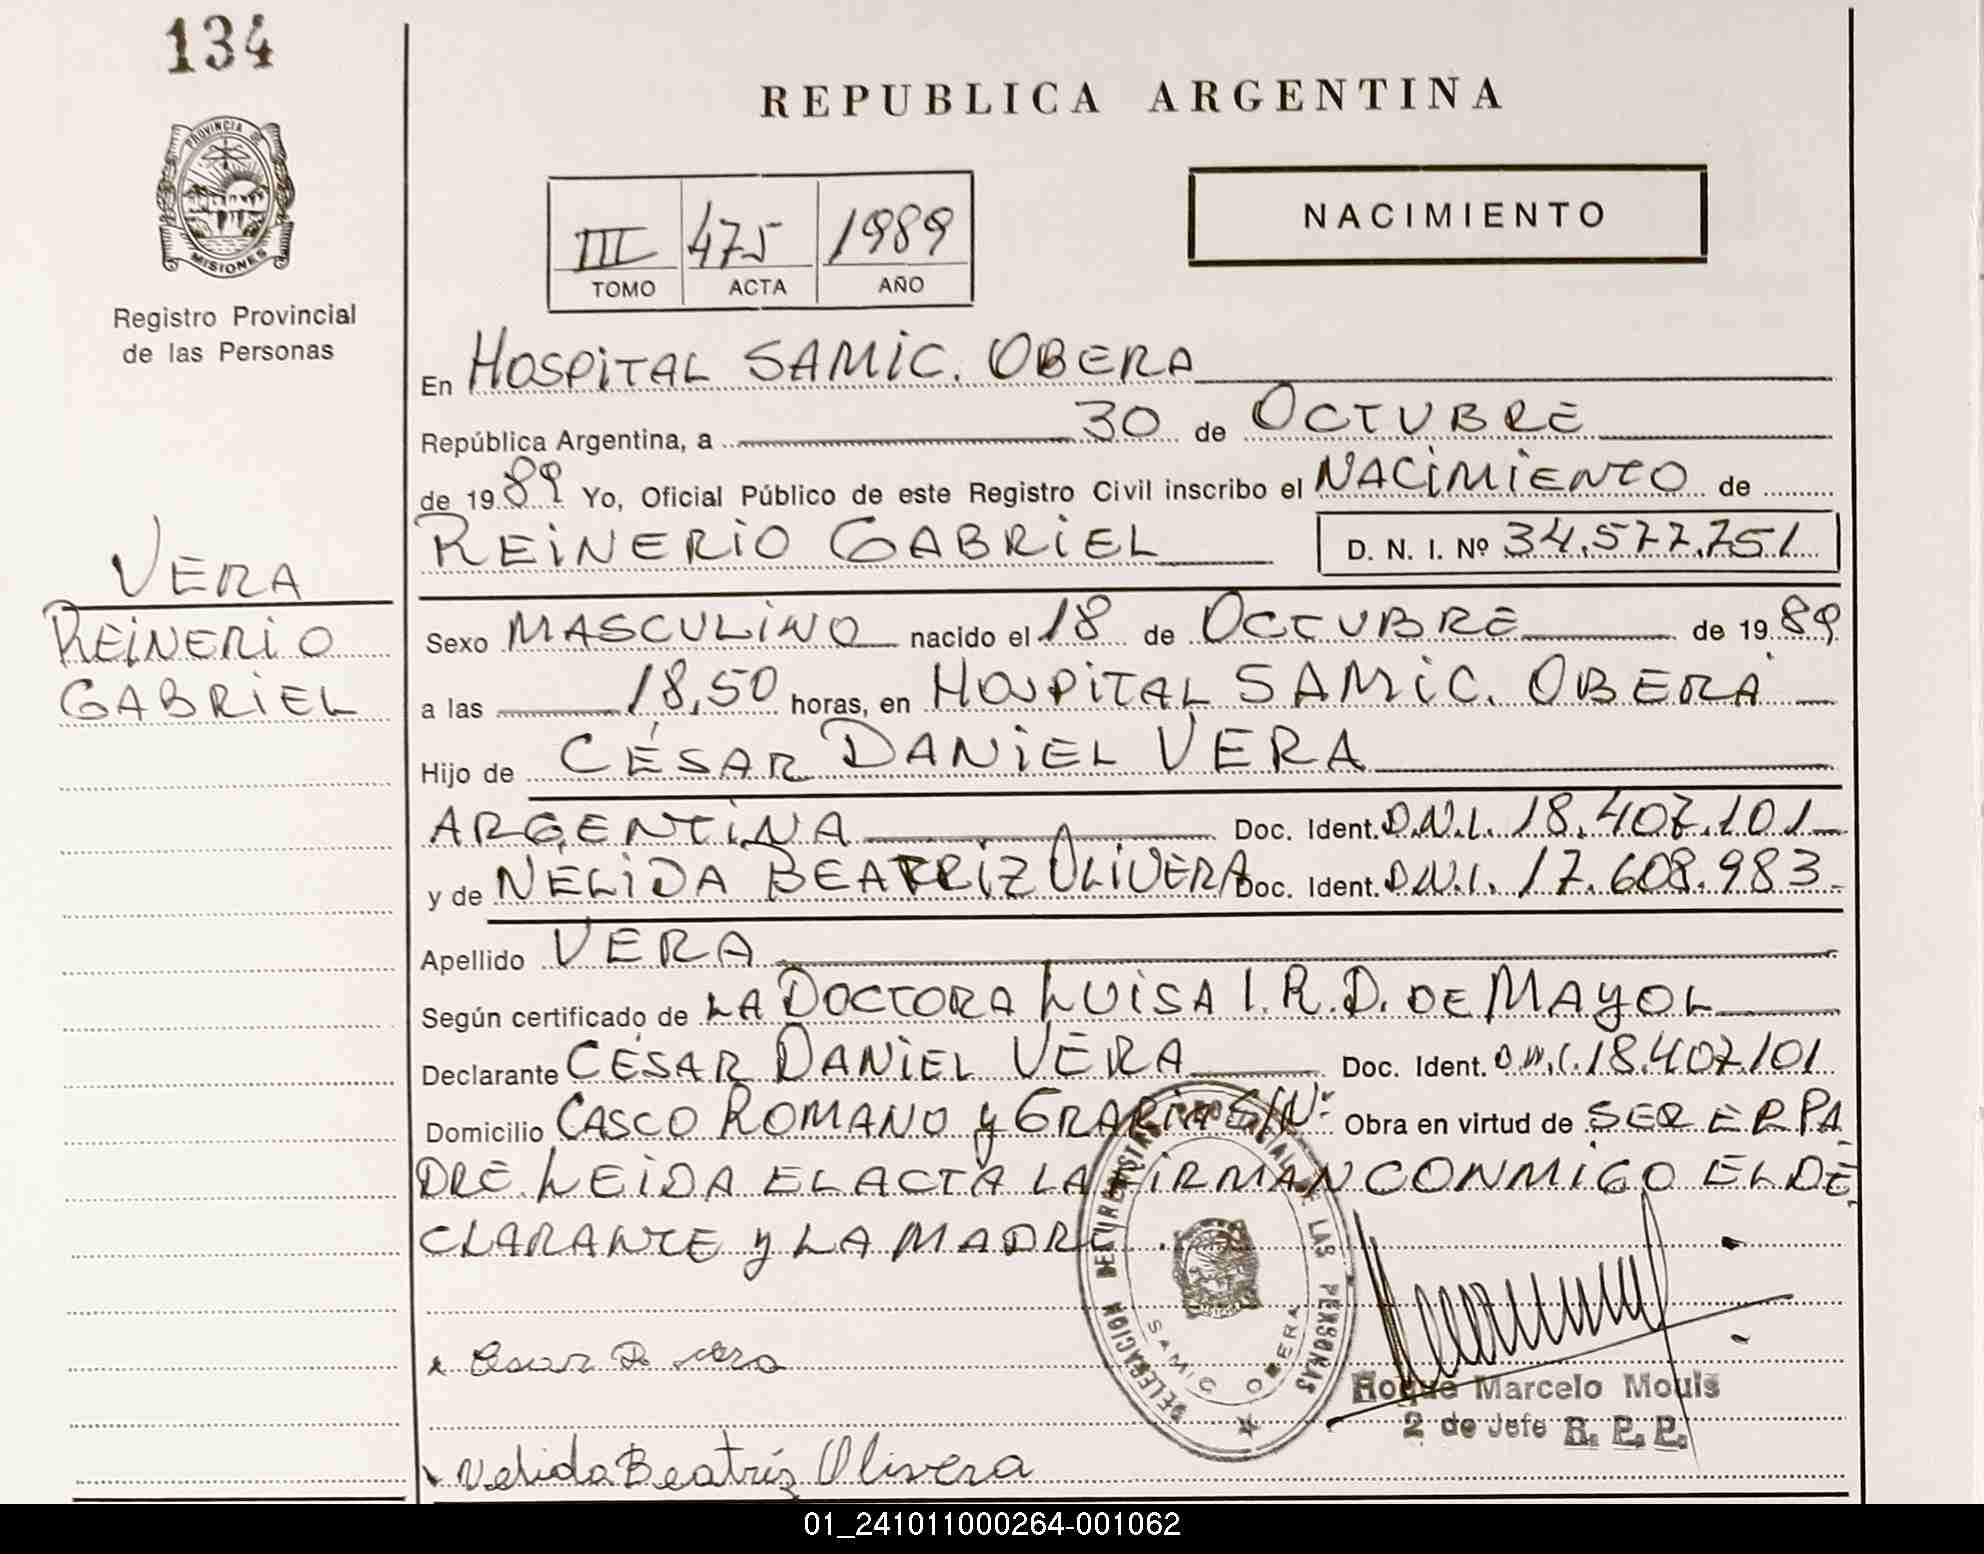 134
PROVINCIA DE
MISIONES
Registro Provincial
de las Personas
VERA
REINERIO
GABRIEL
REPUBLICA ARGENTINA
III 475 1989
TOMO ACTA AÑO
NACIMIENTO
En HOSPITAL SAMIC. OBERA
República Argentina, a 30 de OCTUBRE
de 1989 Yo, Oficial Público de este Registro Civil inscribo el NACIMIENTO de
REINERIO GABRIEL D. N. I. Nº 34.577.751
Sexo MASCULINO nacido el 18 de OCTUBRE de 1989
a las 18,50 horas, en HOSPITAL SAMIC. OBERÁ
Hijo de CÉSAR DANIEL VERA
ARGENTINA Doc. Ident. D.N.I. 18.407.101
y de NELIDA BEATRIZ OLIVERA Doc. Ident. D.N.I. 17.608.983
Apellido VERA
Según certificado de LA DOCTORA LUISA I. R. D. DE MAYOL
Declarante CÉSAR DANIEL VERA Doc. Ident. D.N.I. 18.407.101
Domicilio CASCO ROMANO y GRARIA S/Nº Obra en virtud de SER ER PA
DRE. LEIDA EL ACTA LA FIRMAN CONMIGO EL DE
CLARANTE y LA MADRE.
DELEGACION DE LAS PERSONAS
SAMIC OBERA
Cesar D. Vera
Roque Marcelo Mouls
2 de Jefe R. P. P.
Nelida Beatriz Olivera
01_241011000264-001062